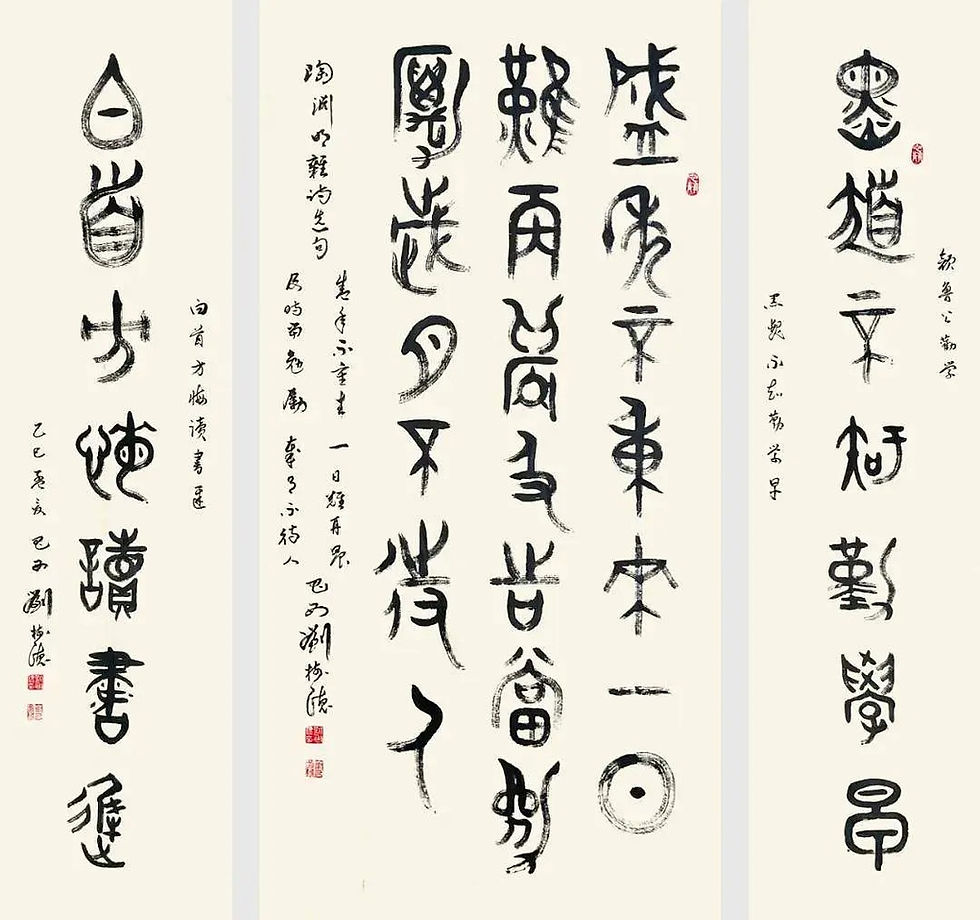 顏魯公勸學
黑髮不知勤學早
黑髮不知勤學早
盛年不重来一日
難再晨及時當勉
勵歲月不待人
陶淵明雜詩选句
盛年不重来 一日難再晨
及時當勉勵 歲月不待人
劉
白首方悔读書遲
白首方悔讀書遲
乙巳孟夏 劉